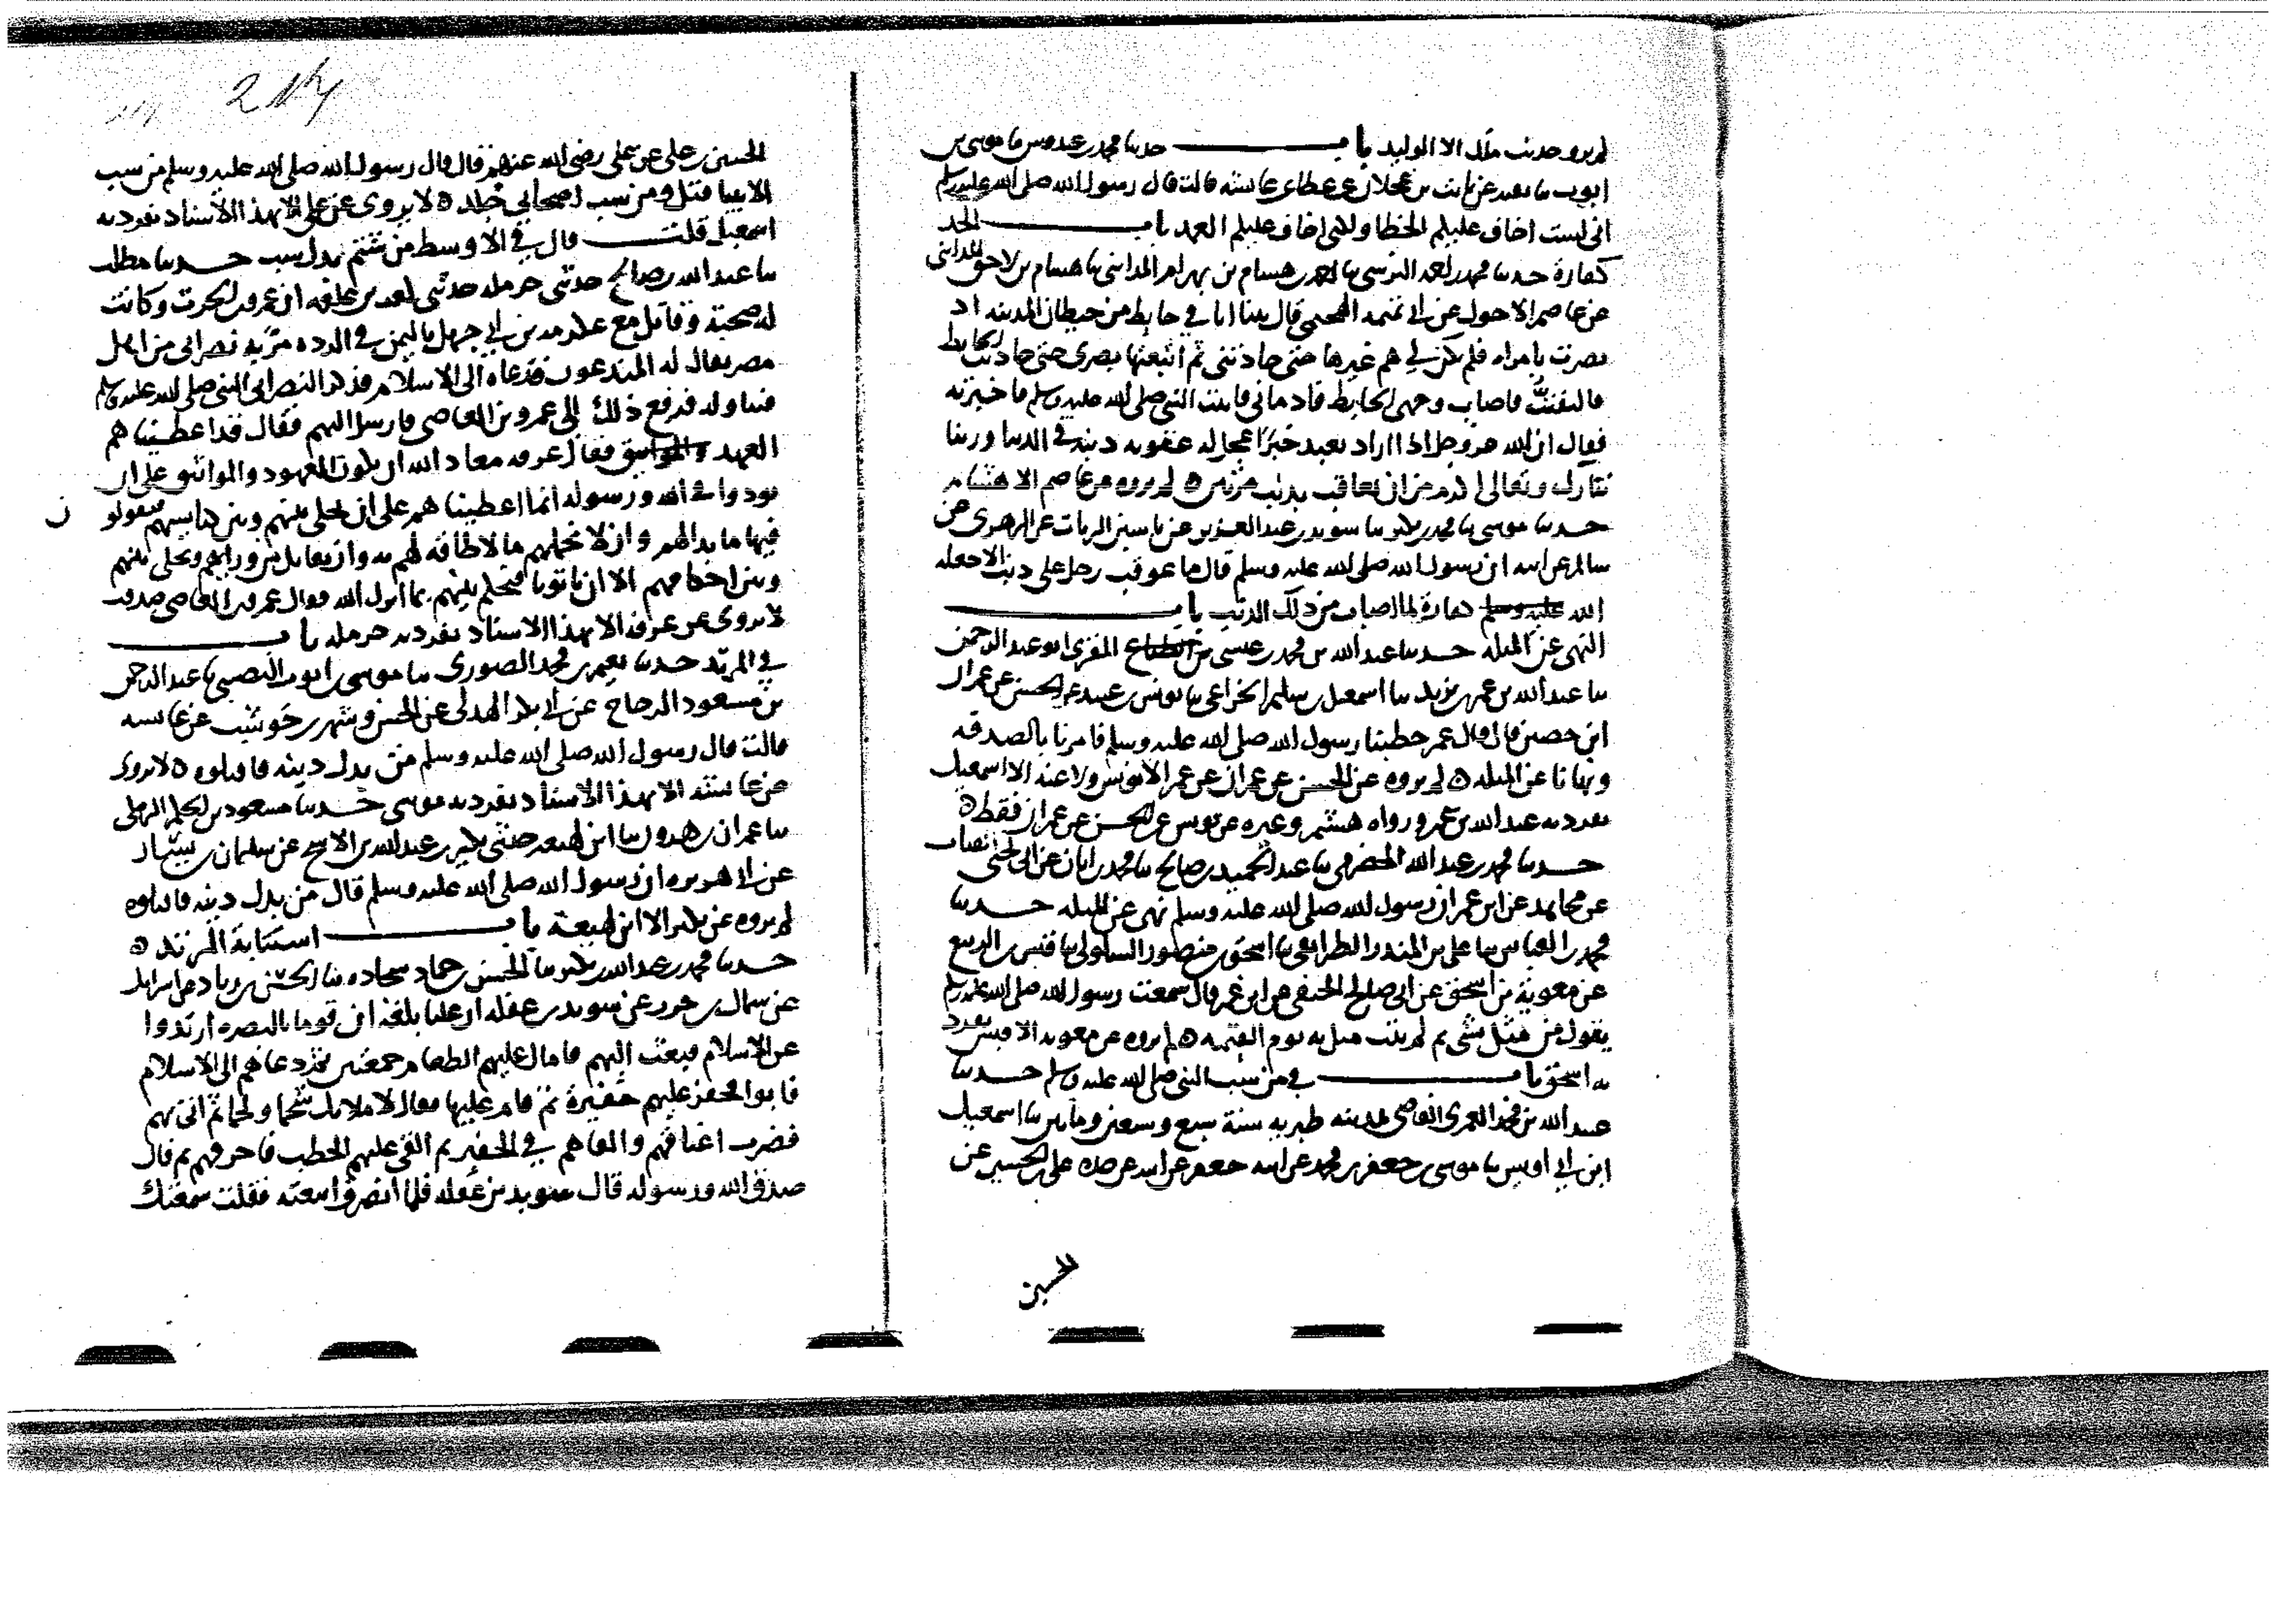 لم يرو حديث مالك الا الوليد باب حدثنا محمد بن عبدوس ثنا موسى بن
ايوب ثنا عن ثابت بن عجلان عن عطاء عن عائشة قالت قال رسول الله صلى الله عليه وسلم
اني لست اخاف عليكم الخطا ولكني اخاف عليكم العمد باب الحد
كفارة حدثنا محمد بن احمد النرسي ثنا احمد بن هشام بن بهرام المدايني ثنا هشام بن لاحق المدايني
عن عاصم الاحول عن ابي تميمة الهجيمي قال بينا انا في حايط من حيطان المدينه اذ
بصرت بامراه فلم يكن لي هم غيرها حتى حاذتني ثم اتبعتها بصري حتى حاذيت الحايط
فالتفت فاصاب وجهي الحايط فادماني فاتيت النبي صلى الله عليه وسلم فاخبرته
فقال ان الله عز وجل اذا اراد بعبد خيرا عجل له عقوبه ذنبه في الدنيا وربنا
تبارك وتعالى اكرم من ان يعاقب بذنب مرتين لم يروه عن عاصم الا هشام
حدثنا موسى ثنا محمد بن بكار ثنا سويد بن عبد العزيز عن ياسين الزيات عن الزهري عن
سالم عن ابيه ان رسول الله صلى الله عليه وسلم قال ما عوقب رجل على ذنب الا جعله
الله عليه وسلم كفارة لما اصاب من ذلك الذنب باب
النهي عن المثله حدثنا عبد الله بن محمد بن عيسى بن المقري ابو عبد الرحمن
ثنا عبد الله بن عمر بن يزيد ثنا اسمعيل بن حكيم الخزاعي ثنا يونس بن عبيد عن الحسن عن عمران
ابن حصين قال قال عمر خطبنا رسول الله صلى الله عليه وسلم فامرنا بالصدقه
ونهانا عن المثله لم يروه عن الحسن عن عمران عن عمر الا يونس ولا عنه الا اسمعيل
تفرد به عبد الله بن عمر ورواه هشيم وغيره عن يونس عن الحسن عن عمران فقط
حدثنا محمد بن عبد الله الحضرمي ثنا عبد الحميد بن صالح ثنا محمد بن ابان عن ابي
عن مجاهد عن ابن عمر ان رسول الله صلى الله عليه وسلم نهى عن المثله حدثنا
محمد بن العباس ثنا علي بن المنذر الطرايقي ثنا اسحق بن منصور السلولي ثنا قيس بن الربيع
عن معوية بن اسحق عن ابي صالح الحنفي عن ابن عمر قال سمعت رسول الله صلى الله عليه وسلم
يقول من مثل بشي ثم لم يتب مثل به يوم القيمه لم يروه عن معويه الا قيس تفرد
به اسحق باب في من سب النبي صلى الله عليه وسلم حدثنا
عبيد الله بن محمد العمري القاضي بمدينه طبريه سنة سبع وسبعين ومايتين ثنا اسمعيل
ابن ابي اويس ثنا موسى بن جعفر بن محمد عن ابيه جعفر عن ابيه عن جده علي بن الحسين عن
الحسين
الحسين بن علي عن علي رضي الله عنهم قال قال رسول الله صلى الله عليه وسلم من سب
الانبيا قتل ومن سب اصحابي جلد لا يروى عن علي الا بهذا الاسناد تفرد به
اسمعيل قلت قال في الاوسط من شتم بدل سب حدثنا مطلب
ثنا عبد الله بن صالح حدثني حرمله حدثني كعب بن علقمه ان عرفه بن الحرث وكانت
له صحبة وقاتل مع عكرمه بن ابي جهل باليمن في الرده مر به نصراني من اهل
مصر يقال له المندعون فدعاه الى الاسلام فذكر النصراني النبي صلى الله عليه وسلم
فتناوله فرفع ذلك الى عمرو بن العاصي فارسل اليهم فقال قد اعطيناهم
العهد والمواثيق فقال عرفه معاذ الله ان تكون العهود والمواثيق على ان
يوذوا في الله ورسوله انما اعطيناهم على ان نخلي بينهم وبين كنايسهم فيقولون
فيها ما بدا لهم وان لا نحملهم ما لا طاقه لهم به وان نقاتل من ورايهم ونخلي بينهم
وبين احكامهم الا ان ياتونا فنحكم بينهم بما انزل الله فقال عمرو بن العاصي صدقت
لا يروى عن عرفه الا بهذا الاسناد تفرد به حرمله باب
في المرتد حدثنا نعيم بن محمد الصوري ثنا موسى بن ايوب النصيبي ثنا عبد الرحمن
بن مسعود الزجاج عن ابي بكر الهذلي عن الحسن وشهر بن حوشب عن عايشه
قالت قال رسول الله صلى الله عليه وسلم من بدل دينه فاقتلوه لا يروى
عن عايشة الا بهذا الاسناد تفرد به موسى حدثنا مسعود بن الرملي
ثنا عمران بن هرون ثنا ابن لهيعه حدثني بكير بن عبد الله بن الاشج عن سليمان بن يسار
عن ابي هريره ان رسول الله صلى الله عليه وسلم قال من بدل دينه فاقتلوه
لم يروه عن بكير الا ابن لهيعة باب استتابة المرتد
حدثنا محمد بن عبد الله بن بكير ثنا الحسن بن حماد سجاده ثنا بن زياد عن اسرايل
عن سماك بن حرب عن سويد بن غفله ان عليا بلغه ان قوما بالبصره ارتدوا
عن الاسلام فبعث اليهم فامال عليهم الطعام جمعتين ثم دعاهم الى الاسلام
فابوا فحفر عليهم حفيرة ثم قام عليها فقال لاملانك شحما ولحما ثم اتى بهم
فضرب اعناقهم والقاهم في الحفير ثم القى عليهم الحطب فاحرقهم ثم قال
صدق الله ورسوله قال سويد بن غفله فلما انصرف اتبعته فقلت سمعتك